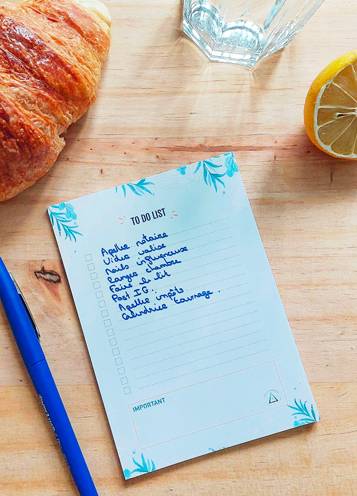 TO DO LIST
Appeler notaire
Vider valise
Mails influenceuse
Ranger chambre
Faire le lit
Post IG.
Appeler impôts
Calendrier tournage.
IMPORTANT